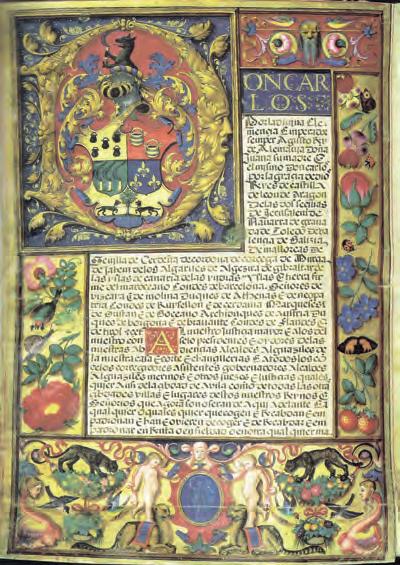 ONCAR
LOS
Por la divina Cle
mencia Emperador
semper Agusto Rey
de Alemania Doña
Juana su madre E el
mismo Don carlos
por la gracia de dio
Reyes de castilla
de leon de Aragon
de las dos seçilias
de Jerusalen de
Navarra de grana
da Toledo de Va
lencia de Galizia
de mallorcas de
Sevilla de Cerdeña de cordova de corcega de Murcia
de Jahen de los Algarves de Algezira de gibraltar de
las yslas de canaria de las yndias yslas E tierra fir
me del mar oceano Condes de barcelona Señores de
vizcaya E de molina Duques de Athenas E de neopa
tria Condes de Ruysellon E de cerdania Marqueses
de Oristan E de Goceano Archiduques de Austria Du
ques de borgoña E de brabante Condes de flandes E
de tirol A nuestro Justicia mayor E A los del
nuestro con sejo presidentes E oydores de las
nuestras Audiencias Alcaldes Alguaziles de
la nuestra casa E corte E chancillerias E A todos los co
Regidores Asistentes gobernadores Alcaldes
Alguaziles merinos E otros juezes E justicias quales
quier Asi de la çibdad de Avila como de todas las otras
çibdades villas E lugares de los nuestros Reynos E
Señorios que Agora son o seran de Aqui Adelante E A
qual quier o quales quier que cogen E Recabdan E en
padronan E han E ovieren de coger E de Recabdar E en
padronar en Renta o en fieldad o en otra qual quier ma